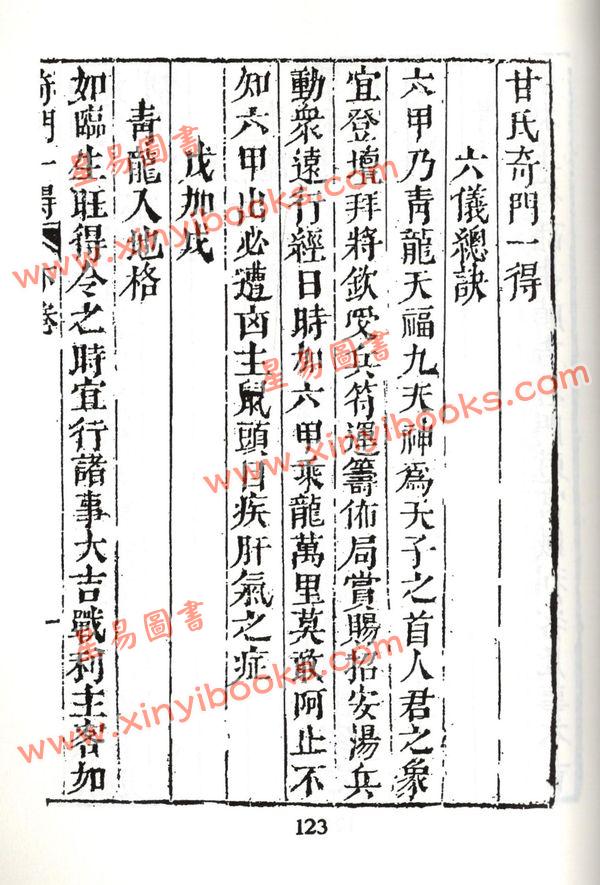 甘氏奇門一得
六儀總訣
六甲乃靑龍天福九天神爲天子之首人君之象
宜登壇拜將欽受兵符運籌佈局賞賜招安湯兵
動衆遠行經曰時加六甲乘龍萬里莫敢呵止不
知六甲出必遭凶主鼠頭目疾肝氣之症
戊加戊
靑龍入地格
如臨生旺得令之時宜行諸事大吉戰利主客如
奇門一得 下卷 一
123
星易圖書
www.xinyibooks.com
星易圖書
www.xinyibooks.com
星易圖書
www.xinyibooks.com